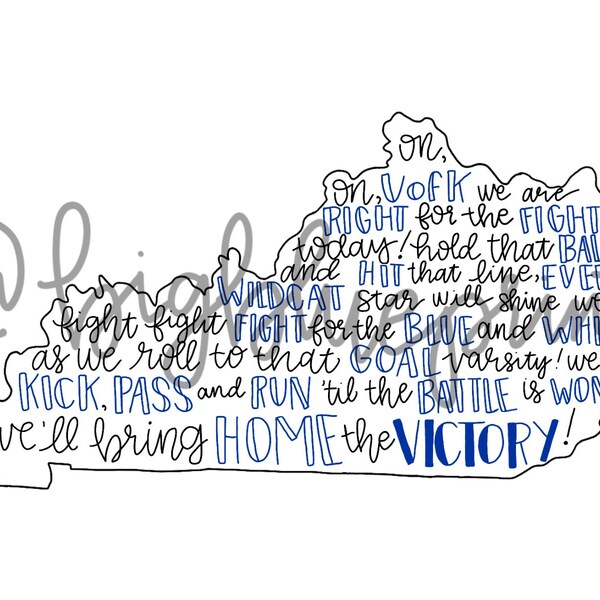 on,
on, UofK we are
RIGHT for the FIGHT
today! hold that BAL
and HIT that line, EVE
WILDCAT star will shine we
fight fight FIGHT for the BLUE and WHI
as we roll to that GOAL varsity! we
KICK, PASS and RUN 'til the BATTLE is WON
we'll bring HOME the VICTORY!